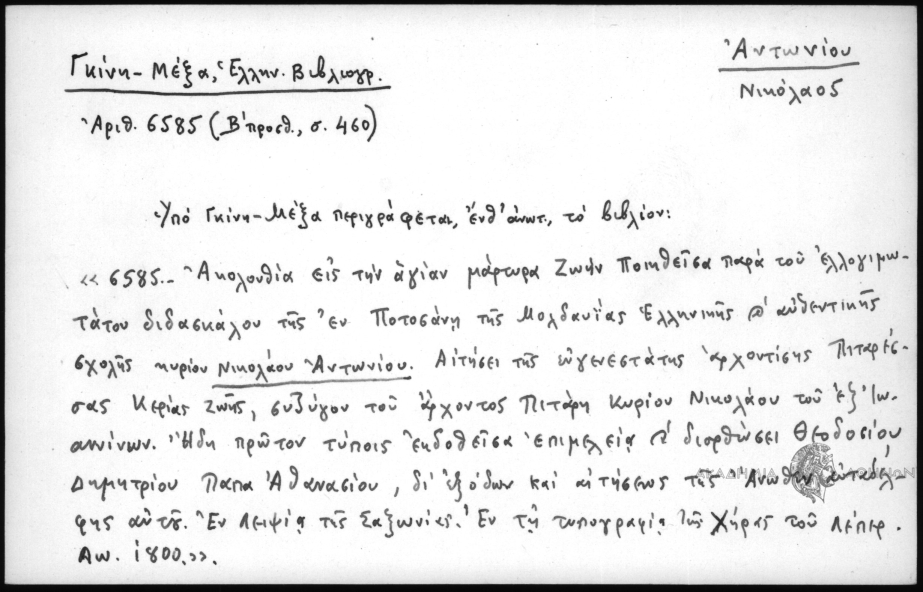 Γκίνη-Μέξα, Ἑλλην. Βιβλιογρ.
Ἀντωνίου
Νικόλαος
Ἀριθ. 6585 (Β' προσθ., σ. 460)
Ὑπό Γκίνη-Μέξα περιγράφεται, ἔνθ' ἀνωτ., τό βιβλίον:
«6585.- Ἀκολουθία εἰς τήν ἁγίαν μάρτυρα Ζωήν ποιηθεῖσα παρά τοῦ ἐλλογιμω-
τάτου διδασκάλου τῆς ἐν Ποτοσάνῃ τῆς Μολδαυΐας Ἑλληνικῆς ϗ αὐθεντικῆς
σχολῆς κυρίου Νικολάου Ἀντωνίου. Αἰτήσει τῆς εὐγενεστάτης ἀρχοντίσης Πιταρέσ-
σας Κερίας Ζωῆς, συζύγου τοῦ ἄρχοντος Πιτάρη Κυρίου Νικολάου τοῦ ἐξ Ἰω-
αννίνων. Ἤδη πρῶτον τύποις ἐκδοθεῖσα ἐπιμελείᾳ ϗ διορθώσει Θεοδοσίου
Δημητρίου Παπα Ἀθανασίου, δι' ἐξόδων καί αἰτήσεως τῆς Ἄνωθεν αὐταδέλ-
φης αὐτῆς. Ἐν Λειψίᾳ τῆς Σαξωνίας. Ἐν τῇ τυπογραφίᾳ τῆς Χήρας τοῦ Λέπερ.
Αω. 1800.».
ΑΚΑΔΗΜΙΑ ΑΘΗΝΩΝ